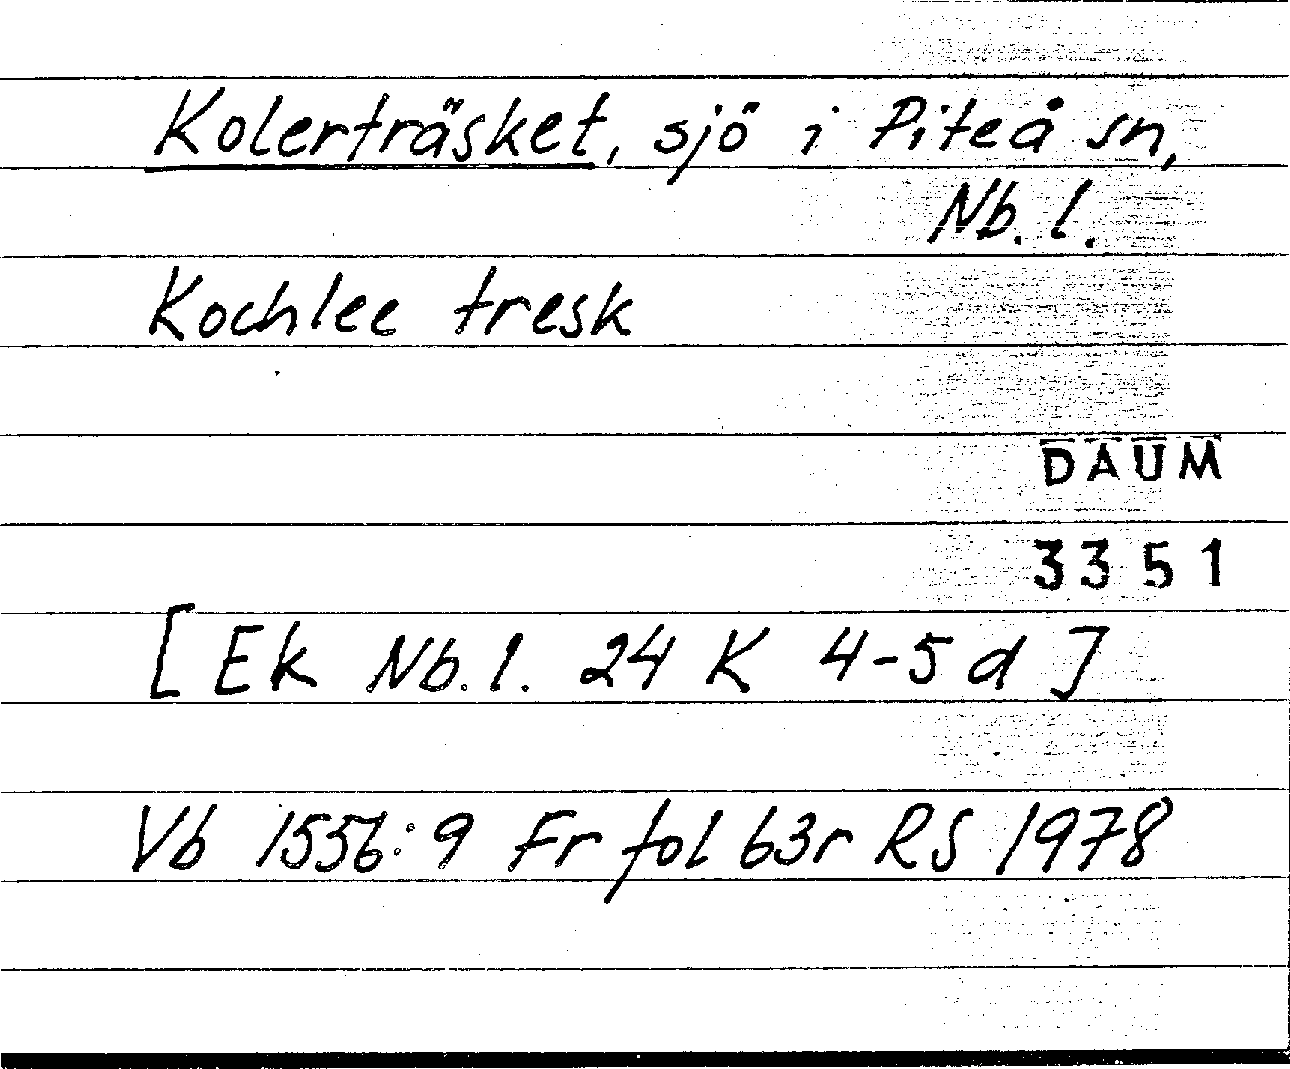 Kolerträsket, sjö i Piteå sn,
Nb. l.
Kochlee tresk
DAUM
3351
[Ek Nb. l. 24 K 4-5 d]
Vb 1556:9 Fr fol 63r RS 1978